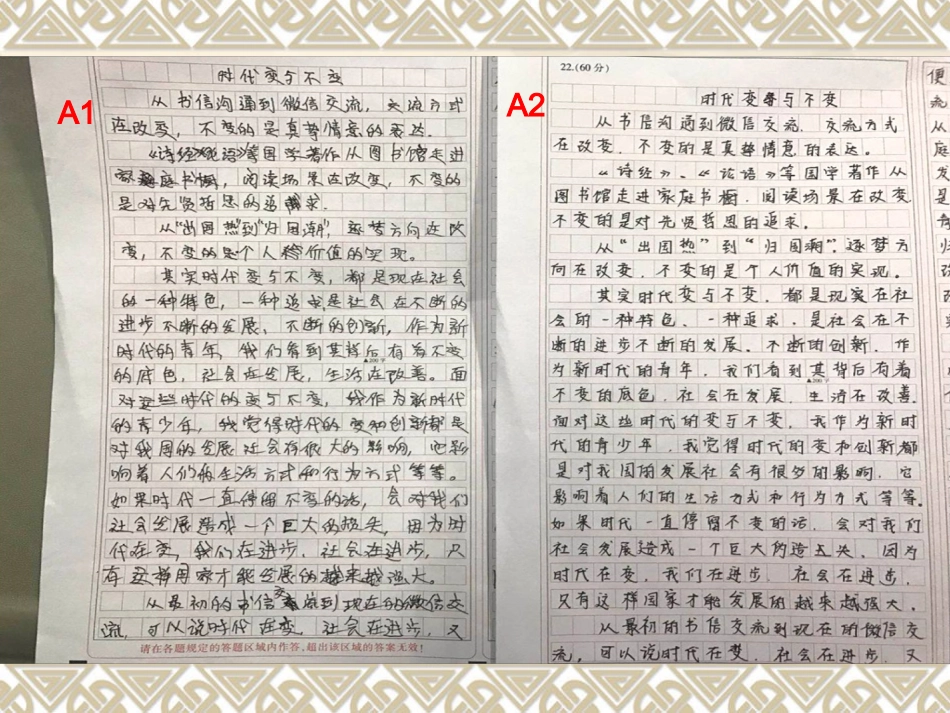 A1
时代变与不变
从书信沟通到微信交流，交流方式
在改变，不变的是真挚情意的表达.
《诗经》《论语》等国学著作从图书馆走进
家庭书橱，阅读场景在改变，不变的
是对先贤哲思的追求.
从“出国热”到“归国潮”，逐梦方向在改
变，不变的是个人价值的实现。
其实时代变与不变，都是现在社会
的一种特色，一种追求是社会在不断的
进步不断的发展、不断的创新，作为新
时代的青年，我们看到其背后有着不变
▲200字
的底色，社会在发展，生活在改善。面
对这些时代的变与不变，我作为新时代
的青少年，我觉得时代的变和创新都是
对我国的发展社会有很大的影响，它影
响着人们的生活方式和行为方式等等。
如果时代一直停留不变的话，会对我们
社会发展造成一个巨大的损失，因为时
代在变，我们在进步，社会在进步，只
有这样国家才能发展的越来越强大。
从最初的书信交流到现在的微信交
流，可以说时代在变，社会在进步，又
请在各题规定的答题区域内作答,超出该区域的答案无效!
A2
22.(60分)
时代变与不变
从书信沟通到微信交流，交流方式
在改变，不变的是真挚情意的表达。
《诗经》、《论语》等国学著作从
图书馆走进家庭书橱，阅读场景在改变
不变的是对先贤哲思的追求。
从“出国热”到“归国潮”逐梦方
向在改变，不变的是个人价值的实现。
其实时代变与不变，都是现实在社
会的一种特色、一种追求，是社会在不
断的进步不断的发展、不断的创新，作
为新时代的青年，我们看到其背后有着
▲200字
不变的底色，社会在发展，生活在改善
面对这些时代的变与不变，我作为新时
代的青少年，我觉得时代的变和创新都
是对我国的发展社会有很多的影响，它
影响着人们的生活方式和行为方式等等.
如果时代一直停留不变的话，会对我们
社会发展造成一个巨大的，因为
时代在变，我们在进步，社会在进步，
只有这样国家才能发展的越来越强大。
从最初的书信交流到现在的微信交
流，可以说时代在变，社会在进步，又